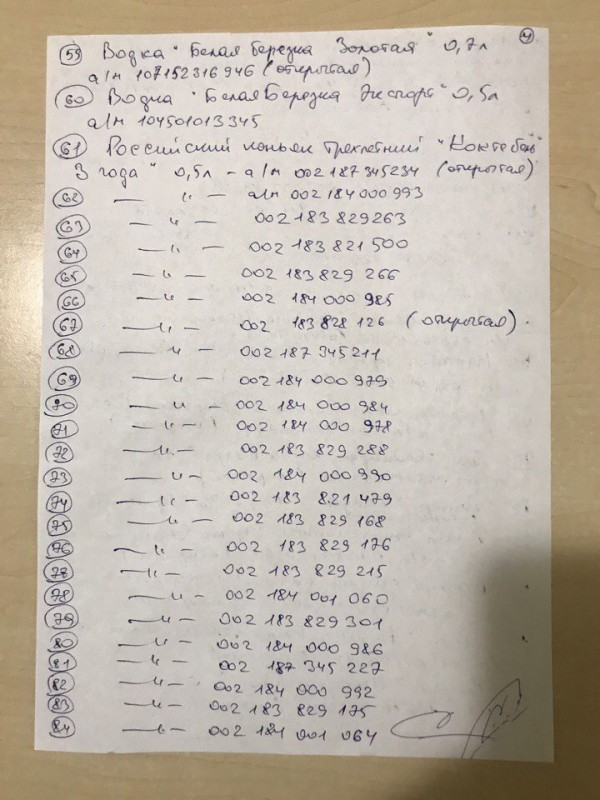 4
59 Водка "Белая Березка Золотая" 0,7л
а/н 107152316946 (открытая)
60 Водка "Белая Березка Экспорт" 0,5л
а/н 104501013345
61 Российский коньяк трехлетний "Коктебель
3 года" 0,5л - а/н 002 187 345234 (открытая)
62 — " — а/н 002 184 000 993
63 — " — 002 183 829263
64 — " — 002 183 821 500
65 — " — 002 183 829 266
66 — " — 002 184 000 985
67 — " — 002 183 828 126 (открытая).
68 — " — 002 187 345211
69 — " — 002 184 000 979
70 — " — 002 184 000 984
71 — " — 002 184 000 978
72 — " — 002 183 829 288
73 — " — 002 184 000 990
74 — " — 002 183 821 479
75 — " — 002 183 829 168
76 — " — 002 183 829 176
77 — " — 002 183 829 215
78 — " — 002 184 001 060
79 — " — 002 183 829 301
80 — " — 002 184 000 986
81 — " — 002 187 345 227
82 — " — 002 184 000 992
83 — " — 002 183 829 175
84 — " — 002 184 001 064